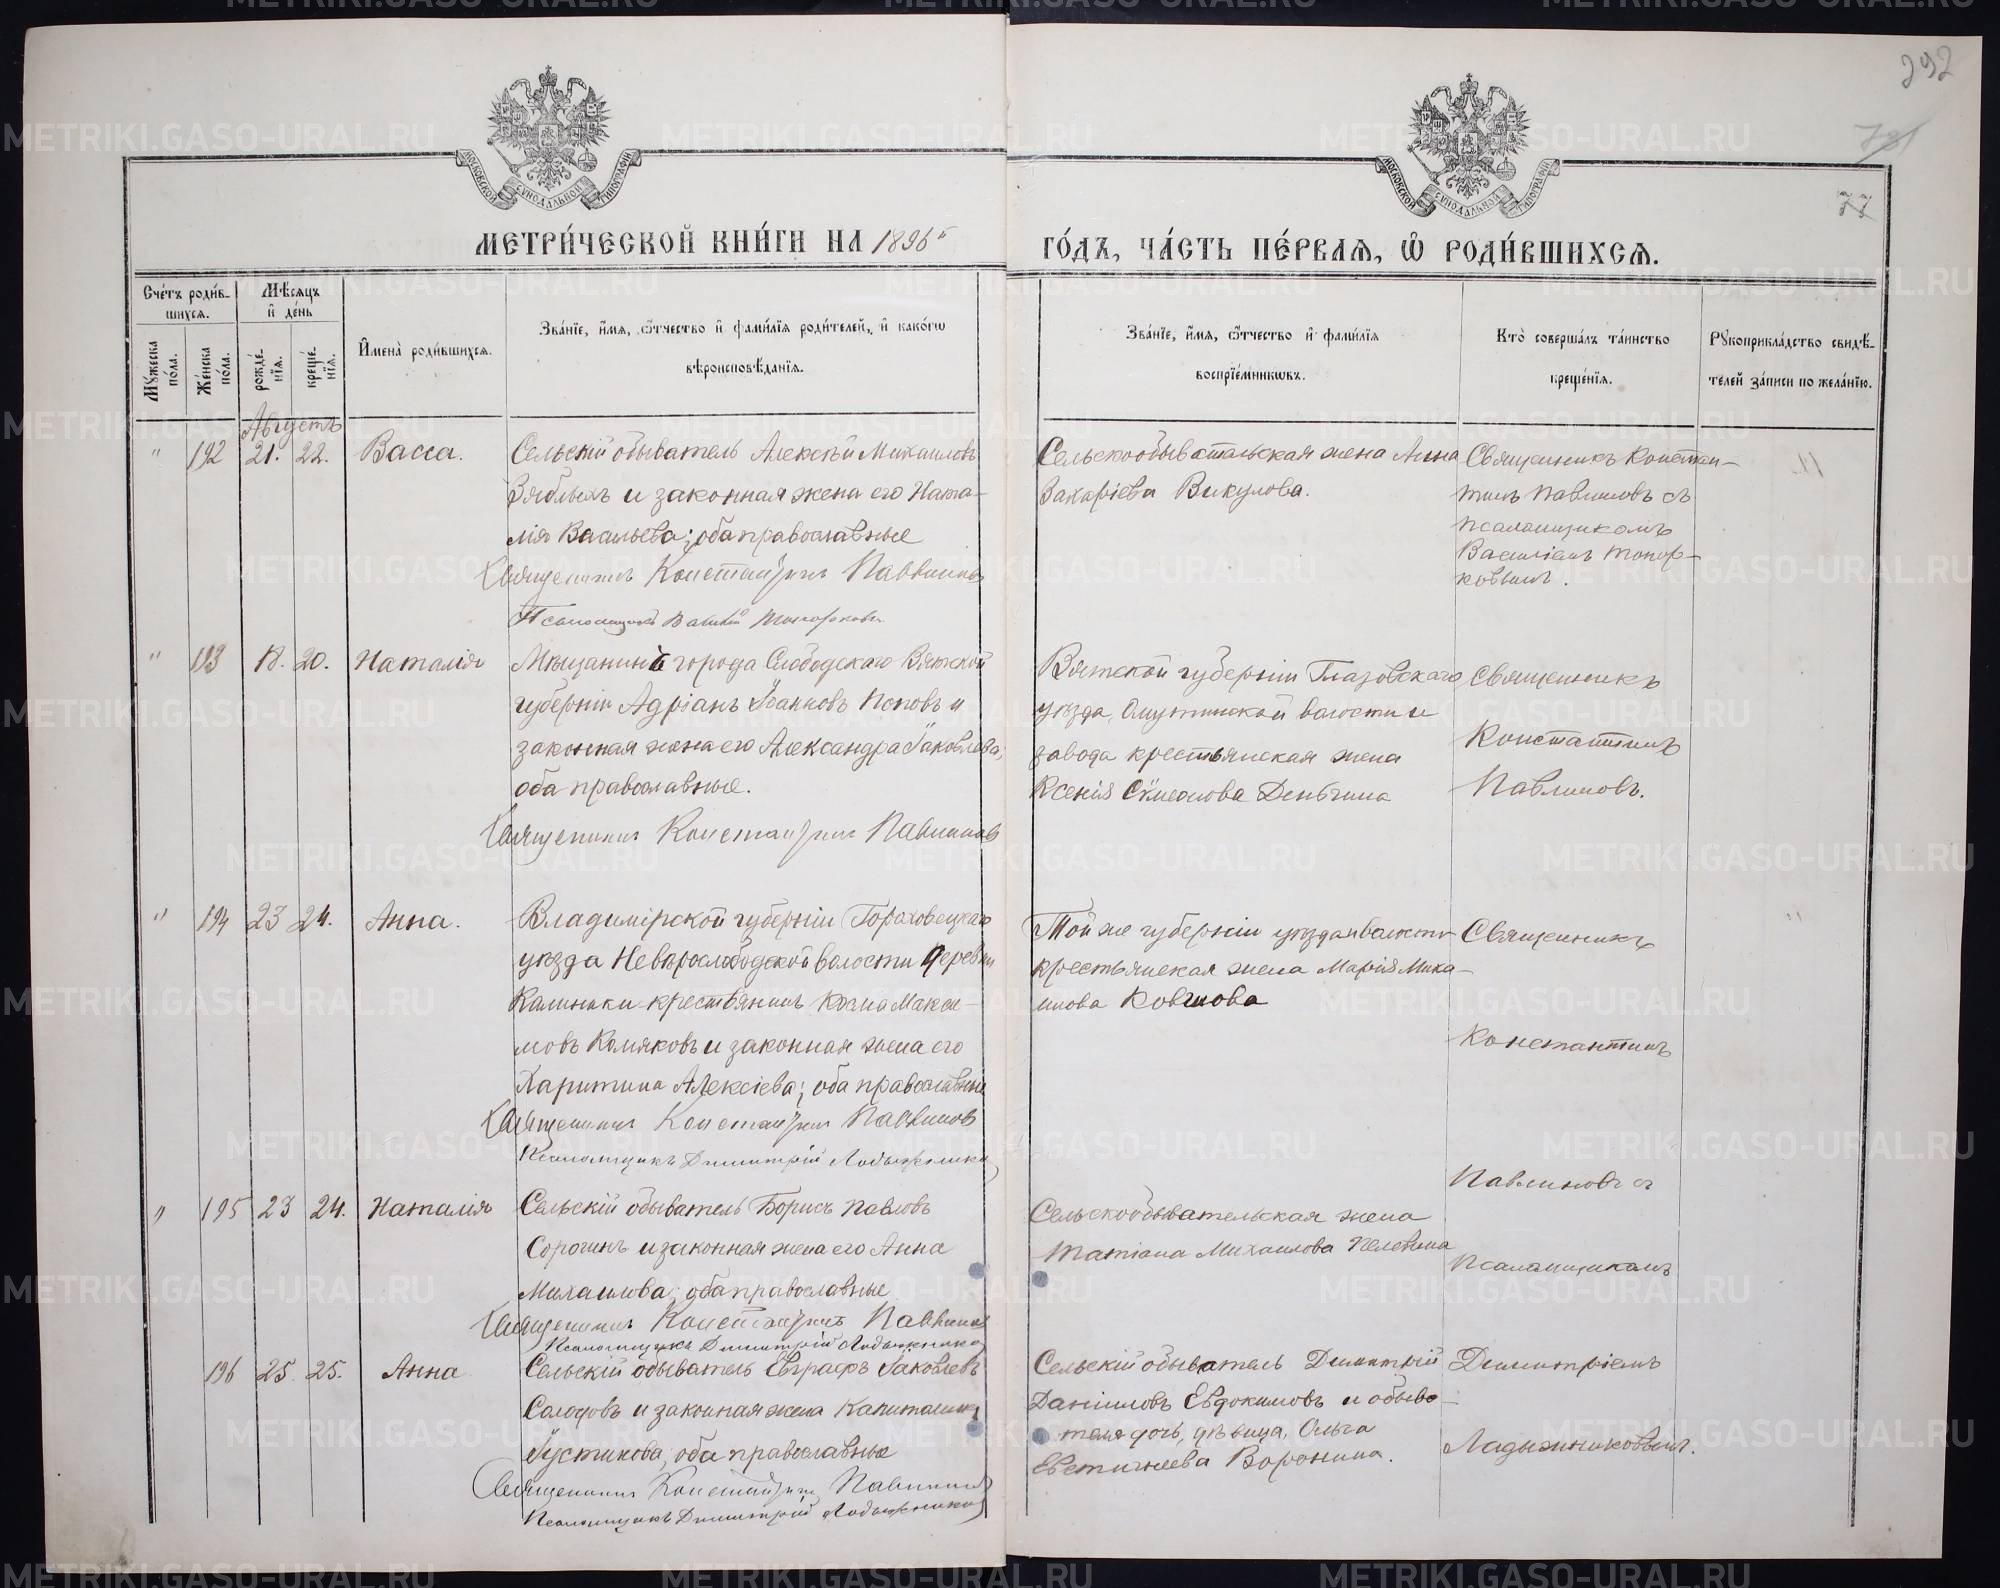 292
781
77
МОСКОВСКОЙ СѴНОДАЛЬНОЙ ТИПОГРАФІИ
МОСКОВСКОЙ СѴНОДАЛЬНОЙ ТИПОГРАФІИ
МЕТРИ́ЧЕСКОЙ КНИ́ГИ НА 1896й
ГО́ДЪ, ЧА́СТЬ ПЕ́РВАЯ, Ѽ РОДИ́ВШИХСЯ.
Сче́тъ роди́в-
шихся.
Мѣ́сяцъ
и҆ де́нь
Му́жеска по́ла.
Же́нска по́ла.
рожде́нїя.
креще́нїя.
И҆мена̀ роди́вшихся.
Зва́нїе, и҆́мя, ѻ҆́тчество и҆ фами́лїя роди́телей, и҆ како́гѡ
вѣроисповѣ́данїя.
Зва́нїе, и҆́мя, ѻ҆́тчество и҆ фами́лїя
воспрїе́мникѡвъ.
Кто̀ соверша́лъ та́инство
креще́нїя.
Рꙋкоприкла́дство свидѣ́-
телей за́писи по жела́нїю.
Августъ
" 192 21. 22. Васса.
Сельскій обыватель Алексѣй Михаиловъ
Зяблыхъ и законная жена его Ната-
лія Васильева; оба православные
Священникъ Константинъ Павлиновъ
Псаломщикъ Василій Топорковъ
Сельскообывательская жена Анна
Захаріева Викулова.
Священникъ Констан-
тинъ Павлиновъ съ
псаломщикомъ
Василіемъ Топор-
ковымъ.
" 193 18. 20. Наталія
Мѣщанинъ города Слободскаго Вятской
губерніи Адріанъ Іоанновъ Поповъ и
законная жена его Александра Іаковлева,
оба православные.
Священникъ Константинъ Павлиновъ
Вятской губерніи Глазовскаго
уѣзда, Омутнинской волости и
завода крестьянская жена
Ксенія Сѵмеонова Деньгина
Священникъ
Константинъ
Павлиновъ.
" 194 23 24. Анна.
Владимірской губерніи Гороховецкаго
уѣзда Невѣрослободской волости деревни
Калинки крестьянинъ Косма Макси-
мовъ Комяковъ и законная жена его
Харитина Алексіева; оба православные
Священникъ Константинъ Павлиновъ
Псаломщикъ Димитрій Ладыжниковъ
Той же губерніи уѣзда и волости
крестьянская жена Марія Миха-
илова Ковшова
Священникъ
Константинъ
Павлиновъ съ
" 195 23 24. Наталія
Сельскій обыватель Борисъ Павловъ
Сорогинъ и законная жена его Анна
Михаилова; оба православные
Священникъ Константинъ Павлиновъ
Псаломщикъ Димитрій Ладыжниковъ
Сельскообывательская жена
Татіана Михаилова Пелевина
Псаломщикомъ
196 25. 25. Анна
Сельскій обыватель Евграфъ Іаковлевъ
Солодовъ и законная жена Капиталина
Іустинова, оба православные
Священникъ Константинъ Павлиновъ
Псаломщикъ Димитрій Ладыжниковъ
Сельскій обыватель Димитрій
Даніиловъ Евдокимовъ и обыва-
теля дочь, дѣвица, Ольга
Евстигнеева Воронина.
Димитріемъ
Ладыжниковымъ.
METRIKI.GASO-URAL.RU